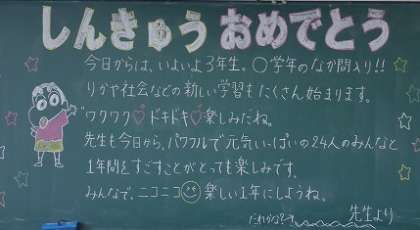 しんきゅう おめでとう
今日からは、いよいよ3年生。○学年のなか間入り!!
りかや社会などの新しい学習もたくさん始まります。
ワクワク♡ドキドキ♡楽しみだね。
先生も今日から、パワフルで元気いっぱいの24人のみんなと
1年間をすごすことがとっても楽しみです。
みんなで、ニコニコ☺楽しい1年にしようね。
だれかな?→ 先生より